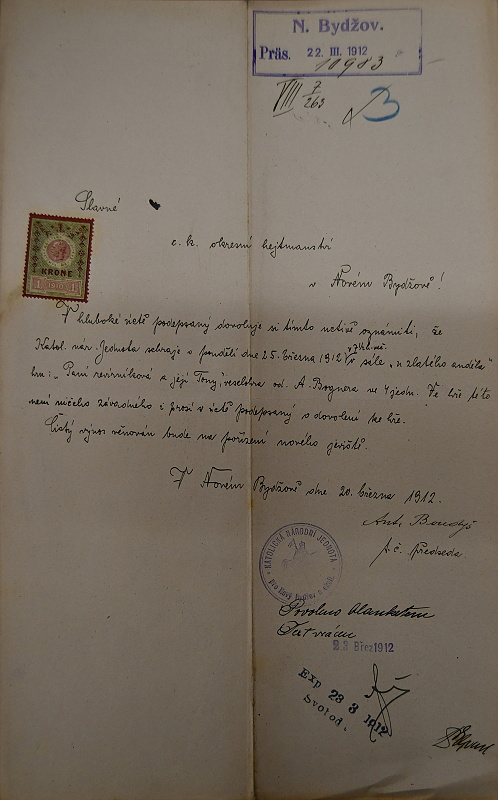 N. Bydžov.
Präs. 22. III. 1912
10983
VIII 7/263
B
Slavné
c. k. okresní hejtmanství
v Novém Bydžově!
KRONE
1 1910 1
V hluboké úctě podepsaný dovoluje si tímto uctivě oznámiti, že
Katol. nár. Jednota sehraje v pondělí dne 25. března 1912 v sále „u zlatého anděla"
hru: „Paní revírníková a její Tony", veselohra od A. Bognera ve 4 jedn. Ve hře této
není ničeho závadného i prosí v úctě podepsaný o dovolení ke hře.
Čistý výnos věnován bude na pořízení nového jeviště.
V Novém Bydžově dne 20. března 1912.
Ant.
t. č. předseda.
KATOLICKÁ NÁRODNÍ JEDNOTA
pro Nový Bydžov a okolí
Povoleno blanketem
23 Břez 1912
Exp 23 3 1912
Svobod.